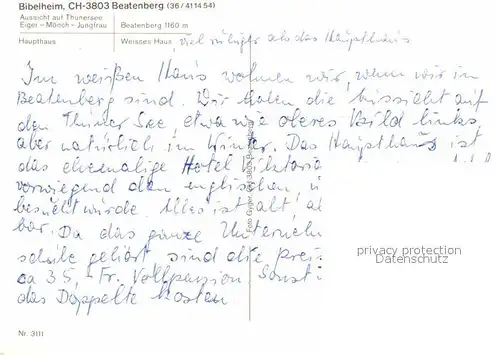 Bibelheim, CH-3803 Beatenberg (36/41 14 54)
Aussicht auf Thunersee
Eiger - Mönch - Jungfrau
Beatenberg 1160 m
Haupthaus
Weisses Haus, viel ruhiger als das Haupthaus
Im weißen Haus wohnen wir, wenn wir in
Beatenberg sind. Wir haben die Aussicht auf
den Thuner See, etwa wie oberes Bild links
aber natürlich im Winter. Das Haupthaus ist
das ehemalige Hotel Viktoria
vorwiegend den englischen, u
besucht würde. Alles ist alt! al
bar. Da das ganze Unternehm
schule gehört sind die Prei
ca 35,- Fr. Vollpension Sonst
das Doppelte kosten
privacy protection
Datenschutz
Nr. 3111